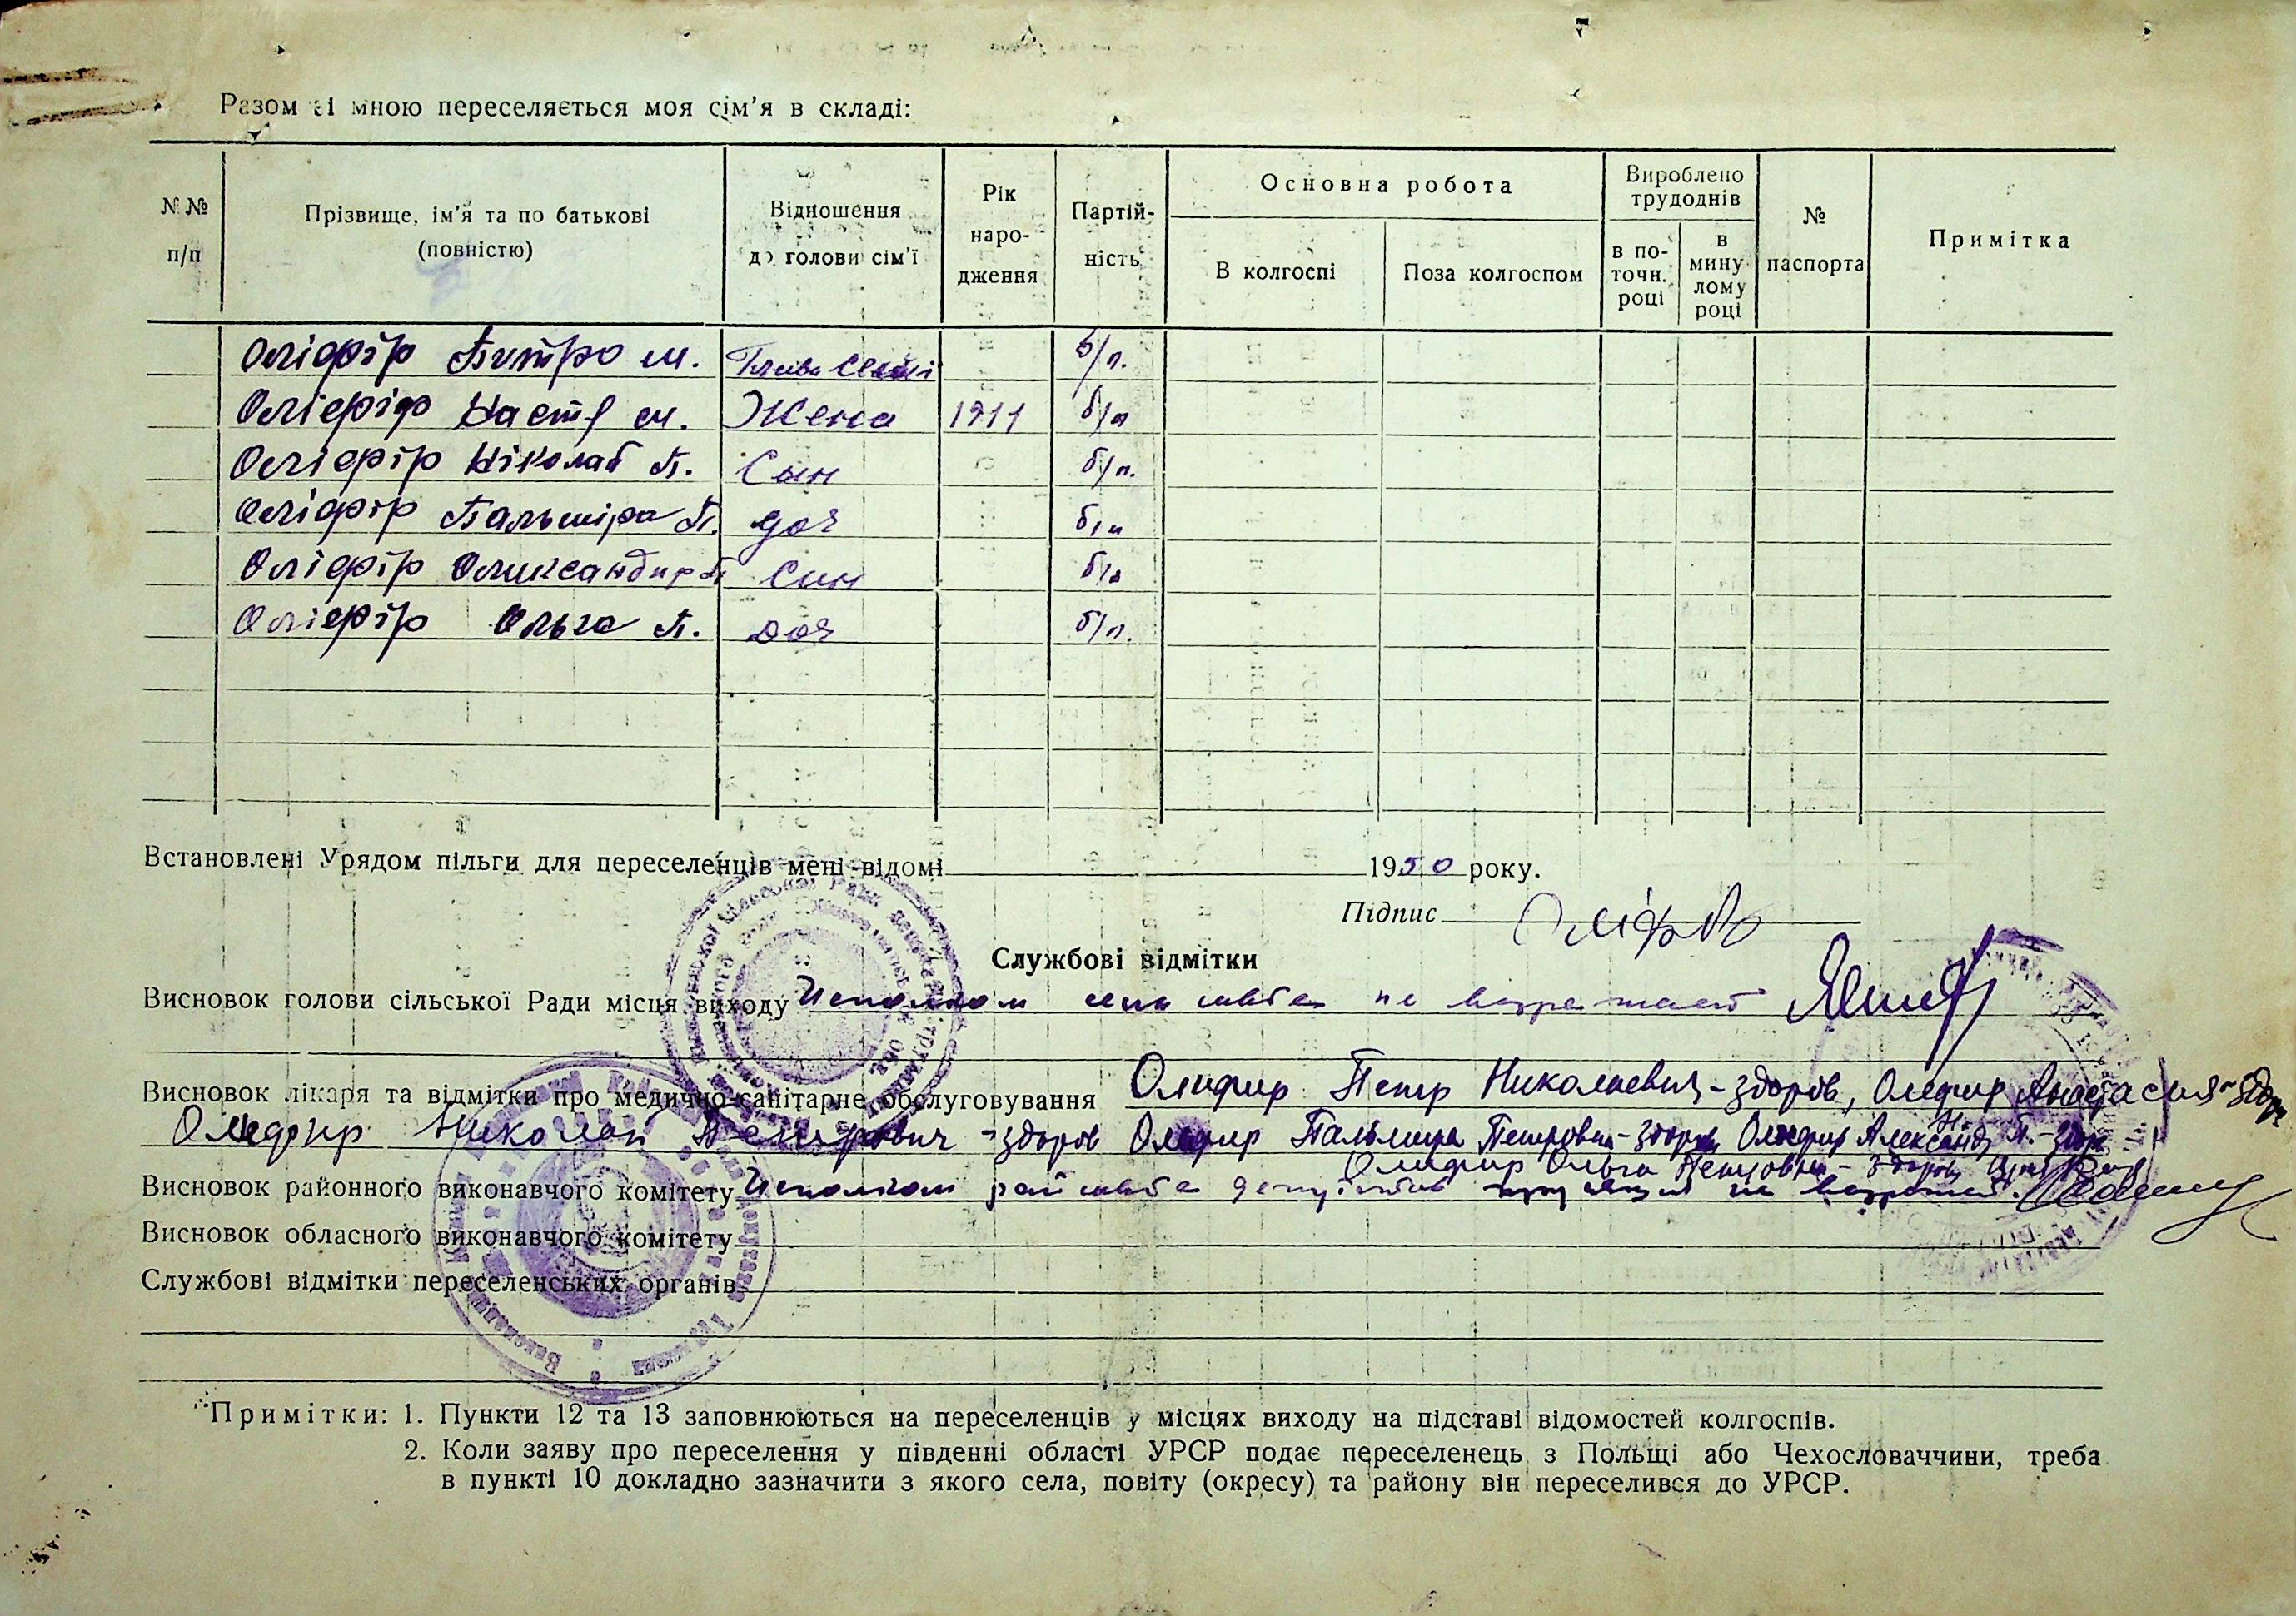 Разом зі мною переселяється моя сім'я в складі:
№ №
п/п
Прізвище, ім'я та по батькові
(повністю)
Відношення
до голови сім'ї
Рік
наро-
дження
Партій-
ність
Основна робота
В колгоспі
Поза колгоспом
Вироблено
трудоднів
в по-
точн.
році
в
мину-
лому
році
№
паспорта
Примітка
Оліфір Питро М. Глава семї б/п.
Оліфір Настя М. Жена 1911 б/п
Оліфір Ніколай П. Сын б/п.
Оліфір Пальміра П. доч б/п
Оліфір Олександир П Син б/п
Оліфір Ольга П. доч б/п.
Встановлені Урядом пільги для переселенців мені відомі 1950 року.
Підпис
Службові відмітки
Висновок голови сільської Ради місця виходу Исполком сельсовета не возражает
Висновок лікаря та відмітки про медично-санітарне обслуговування Олифир Петр Николаевич - здоров, Олифир Анастасия - здор
Олифир Николай Петрович - здоров Олифир Пальмира Петровна - здорова Олифир Александр П. - здор
Олифир Ольга Петровна - здорова
Висновок районного виконавчого комітету Исполком райсовета депутатов трудящихся не возражает.
Висновок обласного виконавчого комітету
Службові відмітки переселенських органів
Примітки: 1. Пункти 12 та 13 заповнюються на переселенців у місцях виходу на підставі відомостей колгоспів.
2. Коли заяву про переселення у південні області УРСР подає переселенець з Польщі або Чехословаччини, треба
в пункті 10 докладно зазначити з якого села, повіту (окресу) та району він переселився до УРСР.